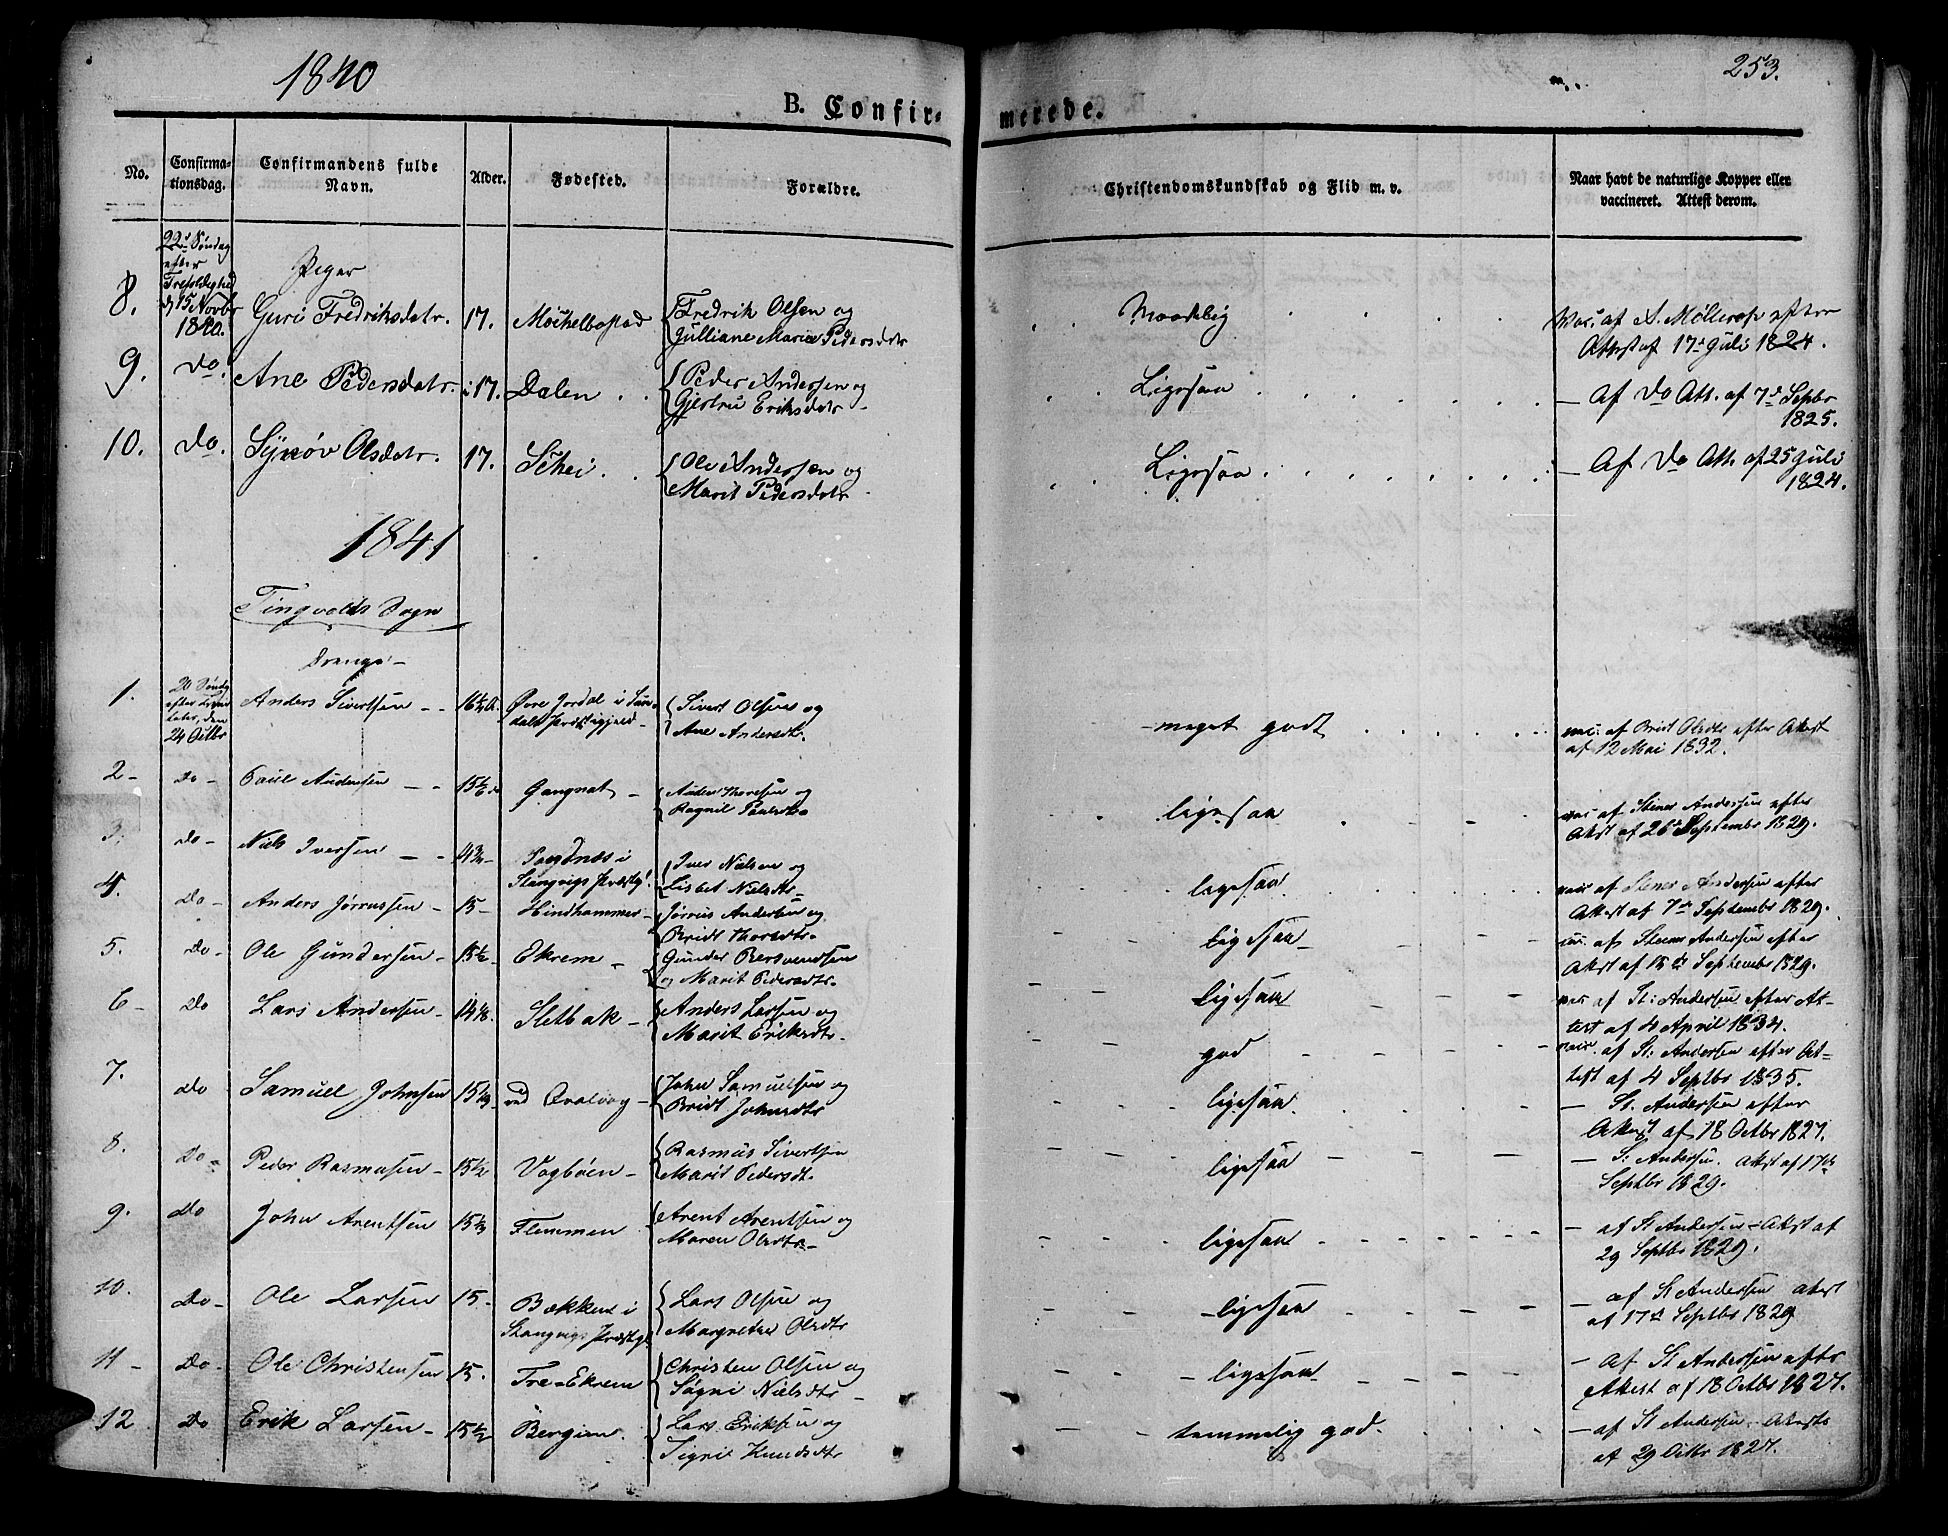 1840
253.
B. Confir-
merede.
No.
Confirma-
tionsdag.
Confirmandens fulde
Navn.
Alder.
Fødested.
Forældre.
Christendomskundskab og Flid m. v.
Naar havt de naturlige Kopper eller
vaccineret. Attest derom.
22d Søndag
efter
Trefoldighed
d 15 Novbr
1840.
Piger
8. Guri Fredriksdatr. 17. {Fredrik Olsen og
Julliane Marie Pedersdatr
Maadelig
Vac. af A. Møllerop efter
Attest af 17d Juli 1824.
9. do. Ane Pedersdatr. 17. Dalen . . {Peder Andersen og
Gjertru Eriksdatr
Ligesaa
— Af do Att. af 7d Septbr
1825.
10. do. Synøv Olsdatr. 17. Schei . . {Ole Andersen og
Marit Pedersdatr
Ligesaa
— Af do Att. af 25 Juli
1824.
1841
Tingvolds Sogn
Drenge
1. 20 Søndg
efter Trini
tatis, den
24 Octbr
Anders Sivertsen - - Øvre Jordal i Sun-
dals Præstegjeld {Sivert Olsen og
Ane Andersdtr.
meget godt
vac. af Brit Olsdtr efter Attest
af 12 Mai 1832.
2 - do - Paul Andersen - - Gangnat - {Anders Thoresen og
Ragnil Paulsdtr
ligesaa
vac af Stener Andersen efter
Attest af 26d September 1829.
3. do - Niels Iversen - - Sandnæs i
Stangvigs Præstgj. {Iver Nielsen og
Lisbet Nielsdtr-
ligesaa
vac af Stener Andersen efter
Attest af 7de September 1829.
4. do - Anders Jørnsen - 15 - Hindhammer - {Jørn Andersen og
Bridt Thorsdtr.
ligesaa
vac. af Steener Andersen efter
Attest af 15de September 1829.
5. do - Ole Gundersen - 15½ - Ekrem - {Gunder Bersvendsen
og Marit Pedersdtr.
ligesaa
vac af St: Andersen efter At-
test af 4 April 1834.
6 - do Lars Andersen - Sletbak - {Anders Larsen og
Marit Eriksdtr.
god
vacc. af St: Andersen efter At-
test af 4 Septbr 1835.
7. do Samuel Johnsen ved Qvalvog - {John Samuelsen og
Bridt Johnsdtr
ligesaa
— St. Andersen efter
Attest af 18 Octbr 1827.
8. do - Peder Rasmusen - 15½ Vogbøen - {Rasmus Sivertsen
Marit Pedersdt.
ligesaa
— St: Andersen. Attest af 17de
Septbr 1829.
9. do John Arentsen Flemmen {Arent Arentsen og
Maren Olsdtr -
ligesaa
— af St Andersen - Attest af
29 Septbr 1829.
10. do - Ole Larsen 15. Bækken i
Stangvigs Præstgj {Lars Olsen og
Margrethe Olsdtr
ligesaa
— af St Andersen Attest
af 17d Septbr 1829
11 - do - Ole Christensen 15. Tre-Ekrem {Christen Olsen og
Søgni Nielsdtr -
ligesaa
— af St Andersen efter
Attest af 18 Octbr 1827.
12 do Erik Larsen - 15½ {Lars Eriksen og
Sigrit Knudsdtr
temmelig god.
— af St Andersen - Attest
af 29 Octbr 1827.